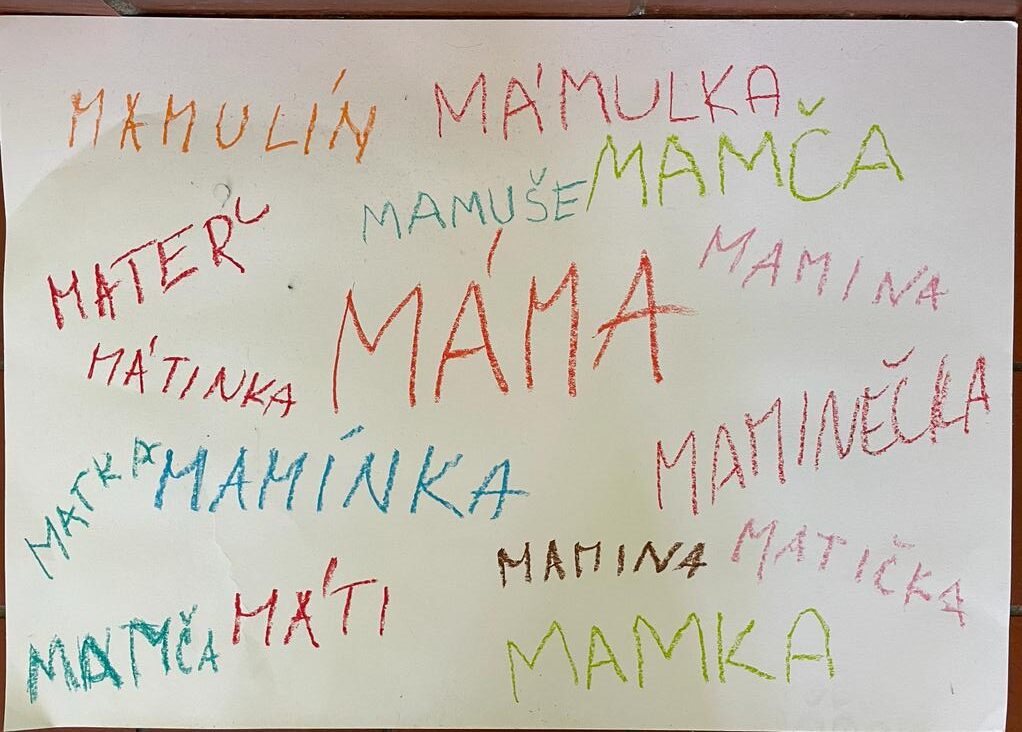 MAMULÍN
MÁMULKA
MAMČA
MAMUŠE
MATEŘ
MAMINA
MÁMA
MÁTINKA
MAMINEČKA
MATKA
MAMÍNKA
MAMINA
MATIČKA
MÁTI
MAMČA
MAMKA